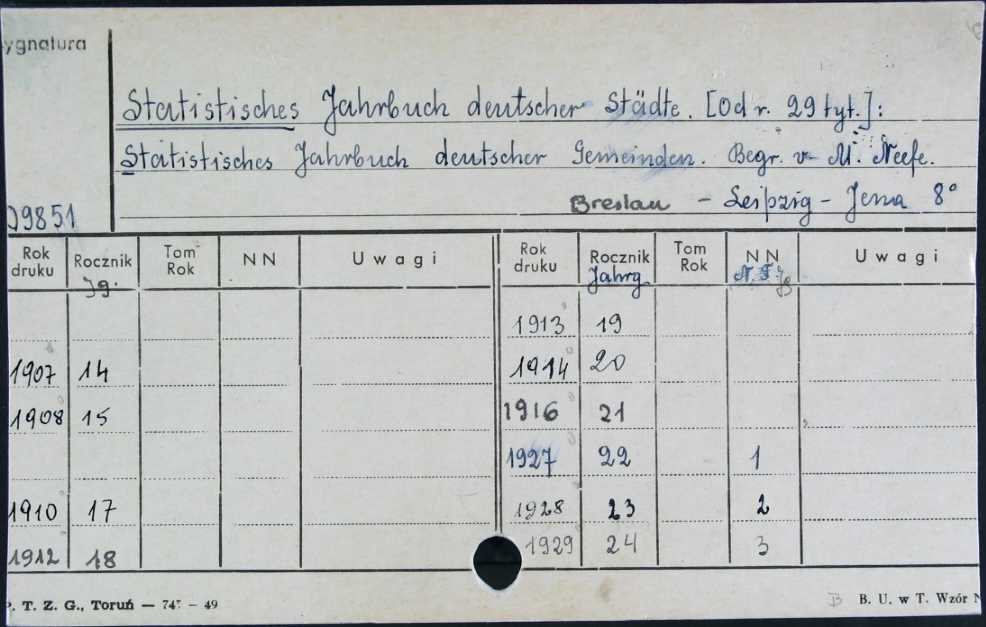 ygnatura
Statistisches Jahrbuch deutscher Städte. [Od r. 29 tyt.]:
Statistisches Jahrbuch deutscher Gemeinden. Begr. v. M. Neefe.
Breslau - Leipzig - Jena 8°
09851
Rok druku Rocznik Tom Rok NN Uwagi Rok druku Rocznik Tom Rok NN Uwagi
Jg. Jahrg N. F. Jg
1913 19
1907 14 1914 20
1908 15 1916 21
1927 22 1
1910 17 1928 23 2
1912 18 1929 24 3
P. T. Z. G., Toruń — 747 – 49 B. U. w T. Wzór N